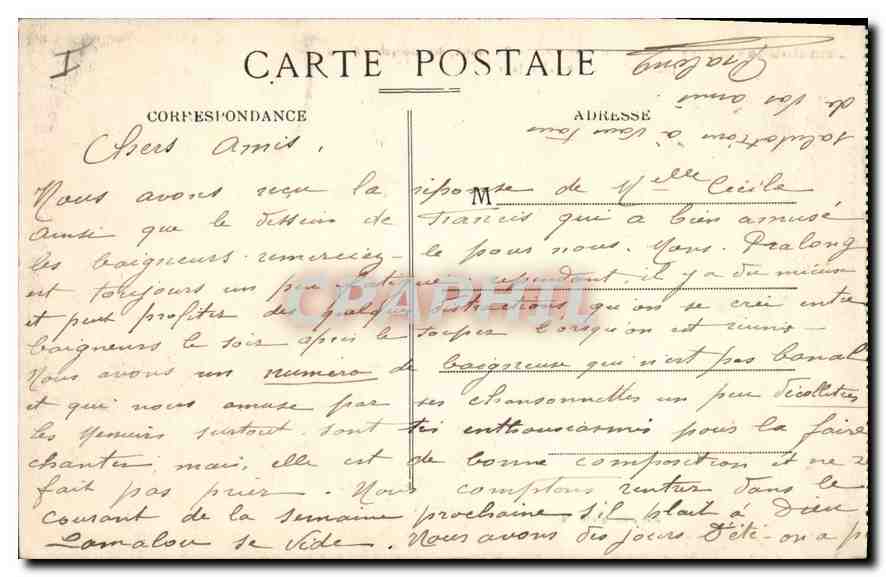 I
CARTE POSTALE
CORRESPONDANCE
ADRESSE
M
Chers Amis,
Nous avons reçu la réponse de Melle Cécile
ainsi que le dessin de Francis qui a bien amusé
les baigneurs. remerciez-le pour nous. Mons. Pralong
est toujours un peu fatigué; cependant, il y a du mieux
et peut profiter des quelques distractions qu'on se crée entre
baigneurs le soir après le souper lorsqu'on est réunis -
Nous avons un numéro de baigneuse qui n'est pas banal
et qui nous amuse par ses chansonnettes un peu décolletées
les Messieurs surtout sont très enthousiasmés pour la faire
chanter mais, elle est de bonne composition et ne se
fait pas prier. Nous comptons rentrer dans le
courant de la semaine prochaine s'il plait à Dieu
Lamalou se vide. Nous avons des jours d'été - on a p
salutations à vous tous
de vos amis
Pralong
CPAPHIL